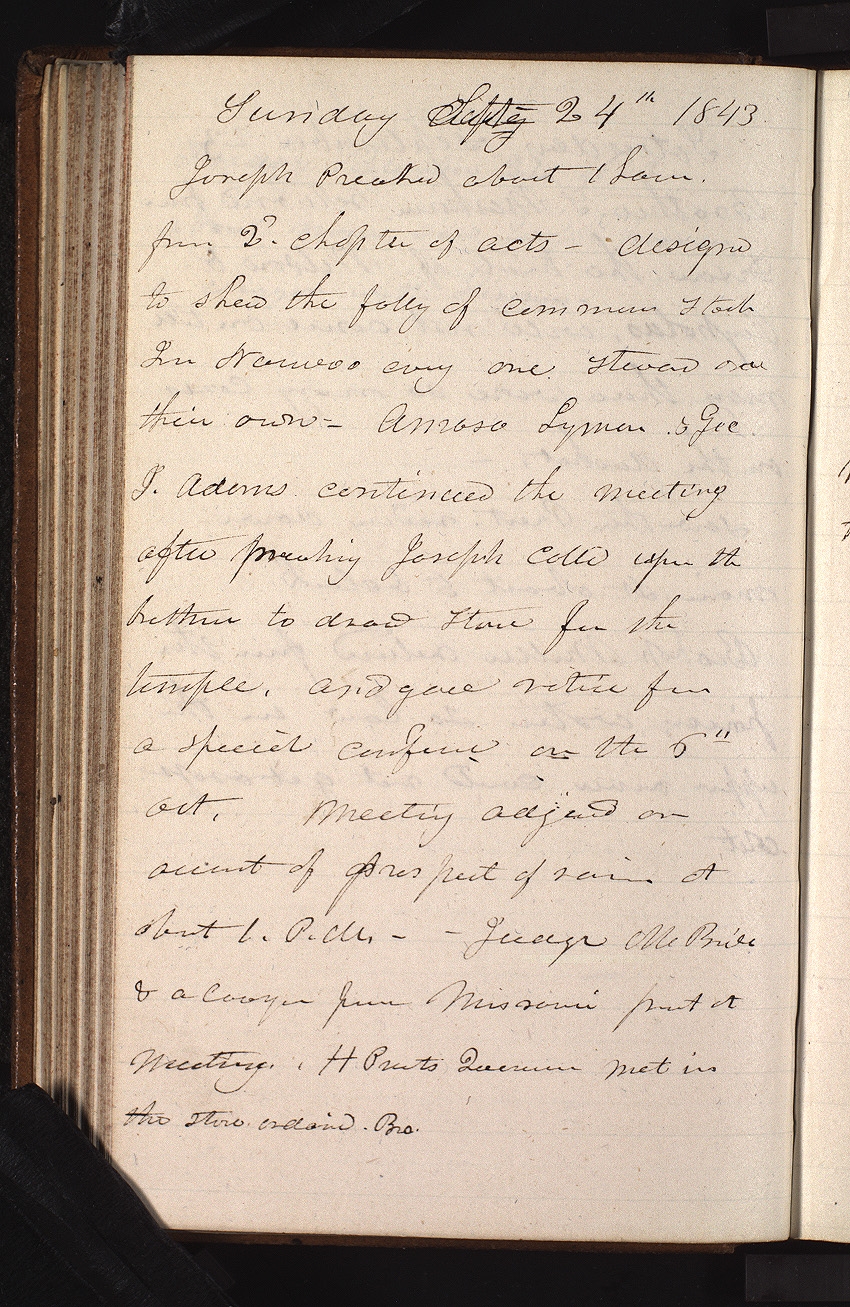 Sunday Septeg 24th 1843.
Joseph Preached about 1 hour.
from 2d. chapter of acts — designed
to shew the folly of common stock
In Nauvoo every one steward over
their own — Amasa Lyman & Geo.
J. Adams continued the meeting
after preaching Joseph called upon the
brethren to draw stone for the
temple. and gave notice for
a special conference on the 6th
oct. Meeting adjourned on
account of prospect of rain at
about 1. P.M. — — Judge McBride
& a lawyer from Missouri present at
Meeting. H Priests Quorum met in
the store ordained. Bro.